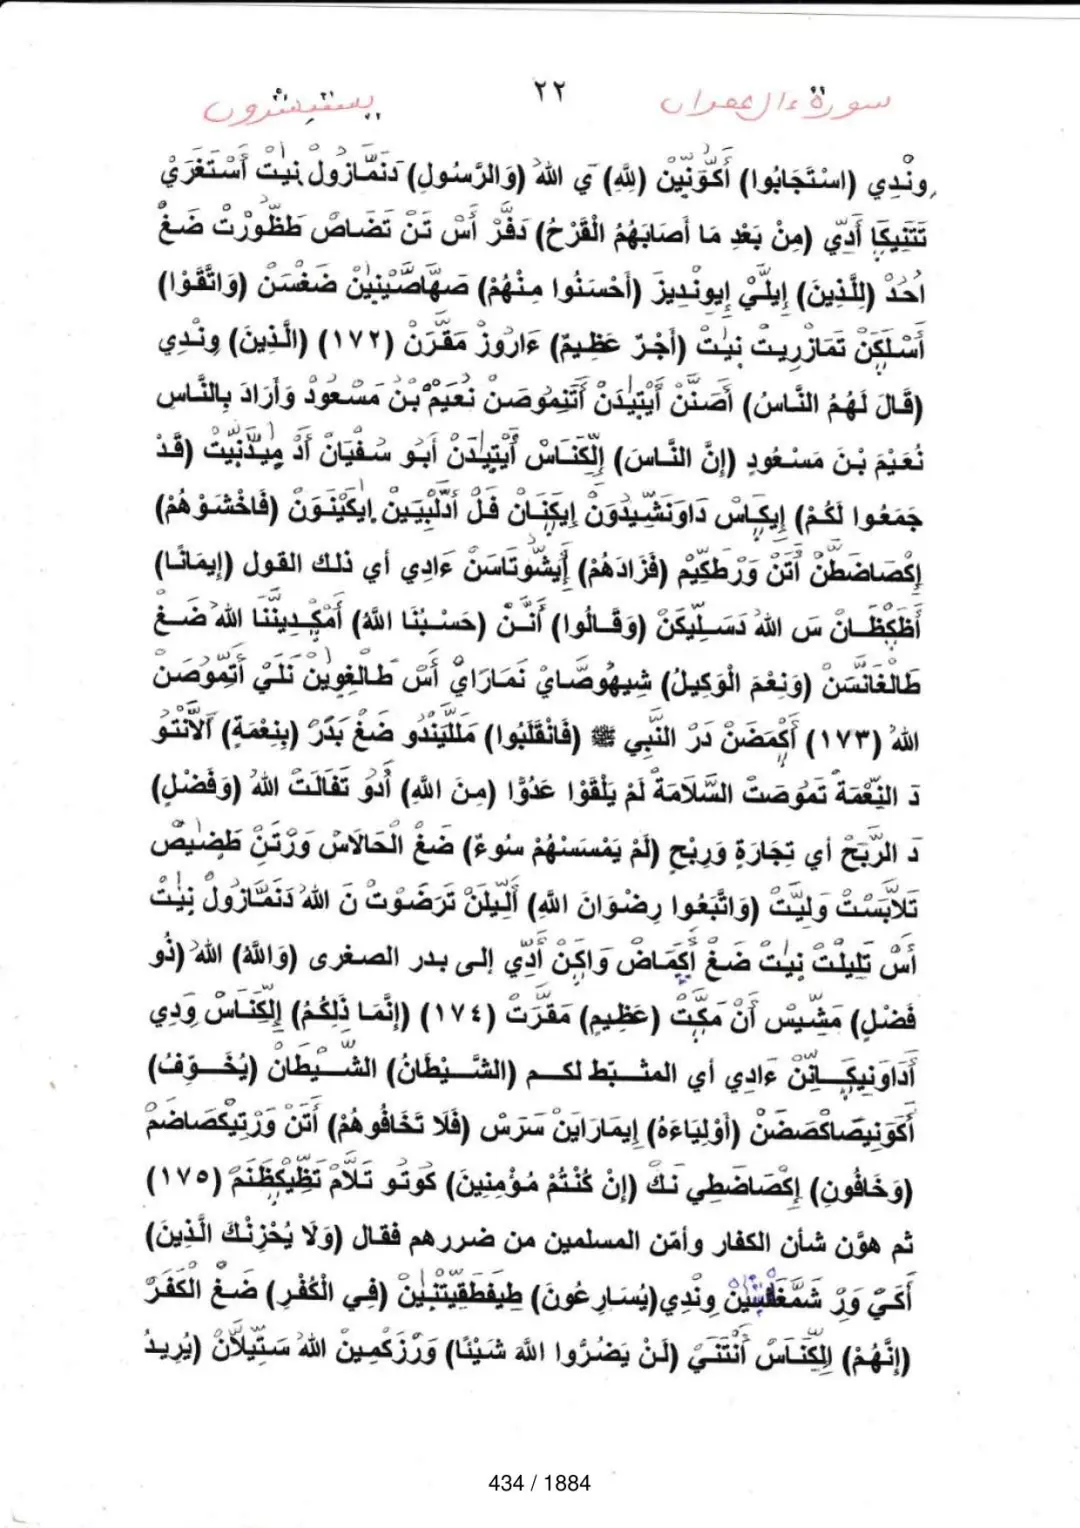 سورة ءال عمران ٢٢ يستبشرون
وِنْدِي (اسْتَجَابُوا) أَكَّوَنِّينْ (لِلَّهِ) يَ اللهْ (وَالرَّسُولِ) دَنَمَّازُولْ نِيتْ أَسْتَغَرَيْ
تَتَنِيكَا أَدِّي (مِنْ بَعْدِ مَا أَصَابَهُمُ الْقَرْحُ) دَفَّرْ أَسْ تَنْ تَضَاصْ طَظُّورْتْ ضَغْ
اُحُدْ (لِلَّذِينَ) إِيلَّيْ إِيونْدِيزْ (أَحْسَنُوا مِنْهُمْ) صَهَّاصَّيْنِينْ ضَغْسَنْ (وَاتَّقَوْا)
أَسْلَكَنْ تَمَازَرِيتْ نِيتْ (أَجْرٌ عَظِيمٌ) ءَارُوزْ مَقَّرَنْ (١٧٢) (الَّذِينَ) وِنْدِي
(قَالَ لَهُمُ النَّاسُ) أَصَنَّنْ أَيْتِيدَنْ أَتَنِمُوصَنْ نُعَيْمْ بْنُ مَسْعُودْ وَأَرَادَ بِالنَّاسِ
نُعَيْمَ بْنَ مَسْعُودٍ (إِنَّ النَّاسَ) إِلْكَنَاسْ أَيْتِيدَنْ أَبُو سُفْيَانْ أَدْ مِيدَّنِّيتْ (قَدْ
جَمَعُوا لَكُمْ) إِيكَاسْ دَاوَنَشِّيدَوَنْ إِيكَنَانْ فَلْ أَدَلْبِيَيِنْ إِيكَيْنَوَنْ (فَاخْشَوْهُمْ)
إِكْصَاضَطَنْ أَتَنْ وَرْطَكِيمْ (فَزَادَهُمْ) إِيشُّوتَاسَنْ ءَادِي أي ذلك القول (إِيمَانًا)
أَظَكْظَانْ سَ اللهْ دَسَلِّيكَنْ (وَقَالُوا) أَنَّنْ (حَسْبُنَا اللَّهُ) أَمْكِدِينَنَا اللهْ ضَغْ
طَالْغَانَسَنْ (وَنِعْمَ الْوَكِيلُ) شِيهُوصَايْ نَمَارَايْ أَسْ طَالْغِوِينْ نَلَيْ أَتِمُّوصَنْ
اللهْ (١٧٣) أَكْمَضَنْ دَرْ النَّبِي ﷺ (فَانْقَلَبُوا) مَلَلْيَنْدُو ضَغْ بَدْرْ (بِنِعْمَةٍ) اَلَانْتُو
دَ النِّعْمَةْ تَمُوصَتْ السَّلَامَةْ لَمْ يَلْقَوْا عَدُوًّا (مِنَ اللَّهِ) أَدُو تَفَالَتْ اللهْ (وَفَضْلٍ)
دَ الرِّبْحْ أي تِجَارَةٍ وَرِبْحٍ (لَمْ يَمْسَسْهُمْ سُوءٌ) ضَغْ الْحَالَاسْ وَرْتَنْ طَضِيصْ
تَلَابَسْتْ وَلِيَّتْ (وَاتَّبَعُوا رِضْوَانَ اللَّهِ) أَلِّيلَنْ تَرَضْوَتْ نَ اللهْ دَنَمَّازُولْ نِيتْ
أَسْ تَلِيلْتْ نِيتْ ضَغْ أَكَمَاضْ وَاكَنْ أَدِّي إلى بدر الصغرى (وَاللَّهُ) اللهْ (ذُو
فَضْلٍ) مَشِّيسْ أَنْ مَكَّتْ (عَظِيمٍ) مَقَرَّتْ (١٧٤) (إِنَّمَا ذَلِكُمُ) إِلْكَنَاسْ وَدِي
أَدَاوَنِيكَانِّنْ ءَادِي أي المثـبّط لكـم (الشَّـيْطَانُ) الشَّـيْطَانْ (يُخَـوِّفُ)
أَكَوَنِيصَاكْصَضَنْ (أَوْلِيَاءَهُ) إِيمَارَايَنْ سَرَسْ (فَلَا تَخَافُوهُمْ) أَتَنْ وَرْتِيكْصَاضَمْ
(وَخَافُونِ) إِكْصَاضَطِي نَكْ (إِنْ كُنْتُمْ مُؤْمِنِينَ) كُوتُو تَلَّامْ تَظِّيكْظَنَمْ (١٧٥)
ثم هوَّن شأن الكفار وأمّن المسلمين من ضررهم فقال (وَلَا يُحْزِنْكَ الَّذِينَ)
أَكَيْ وَرْ وِنْدِي (يُسَارِعُونَ) طِيفَطَقِيتْنِينْ (فِي الْكُفْرِ) ضَغْ الْكَفَرْ
(إِنَّهُمْ) إِلْكَنَاسْ أَنْتَنَيْ (لَنْ يَضُرُّوا اللَّهَ شَيْئًا) وَرْزَكْمِينْ اللهْ سَتِّيلَانْ (يُرِيدُ
434 / 1884